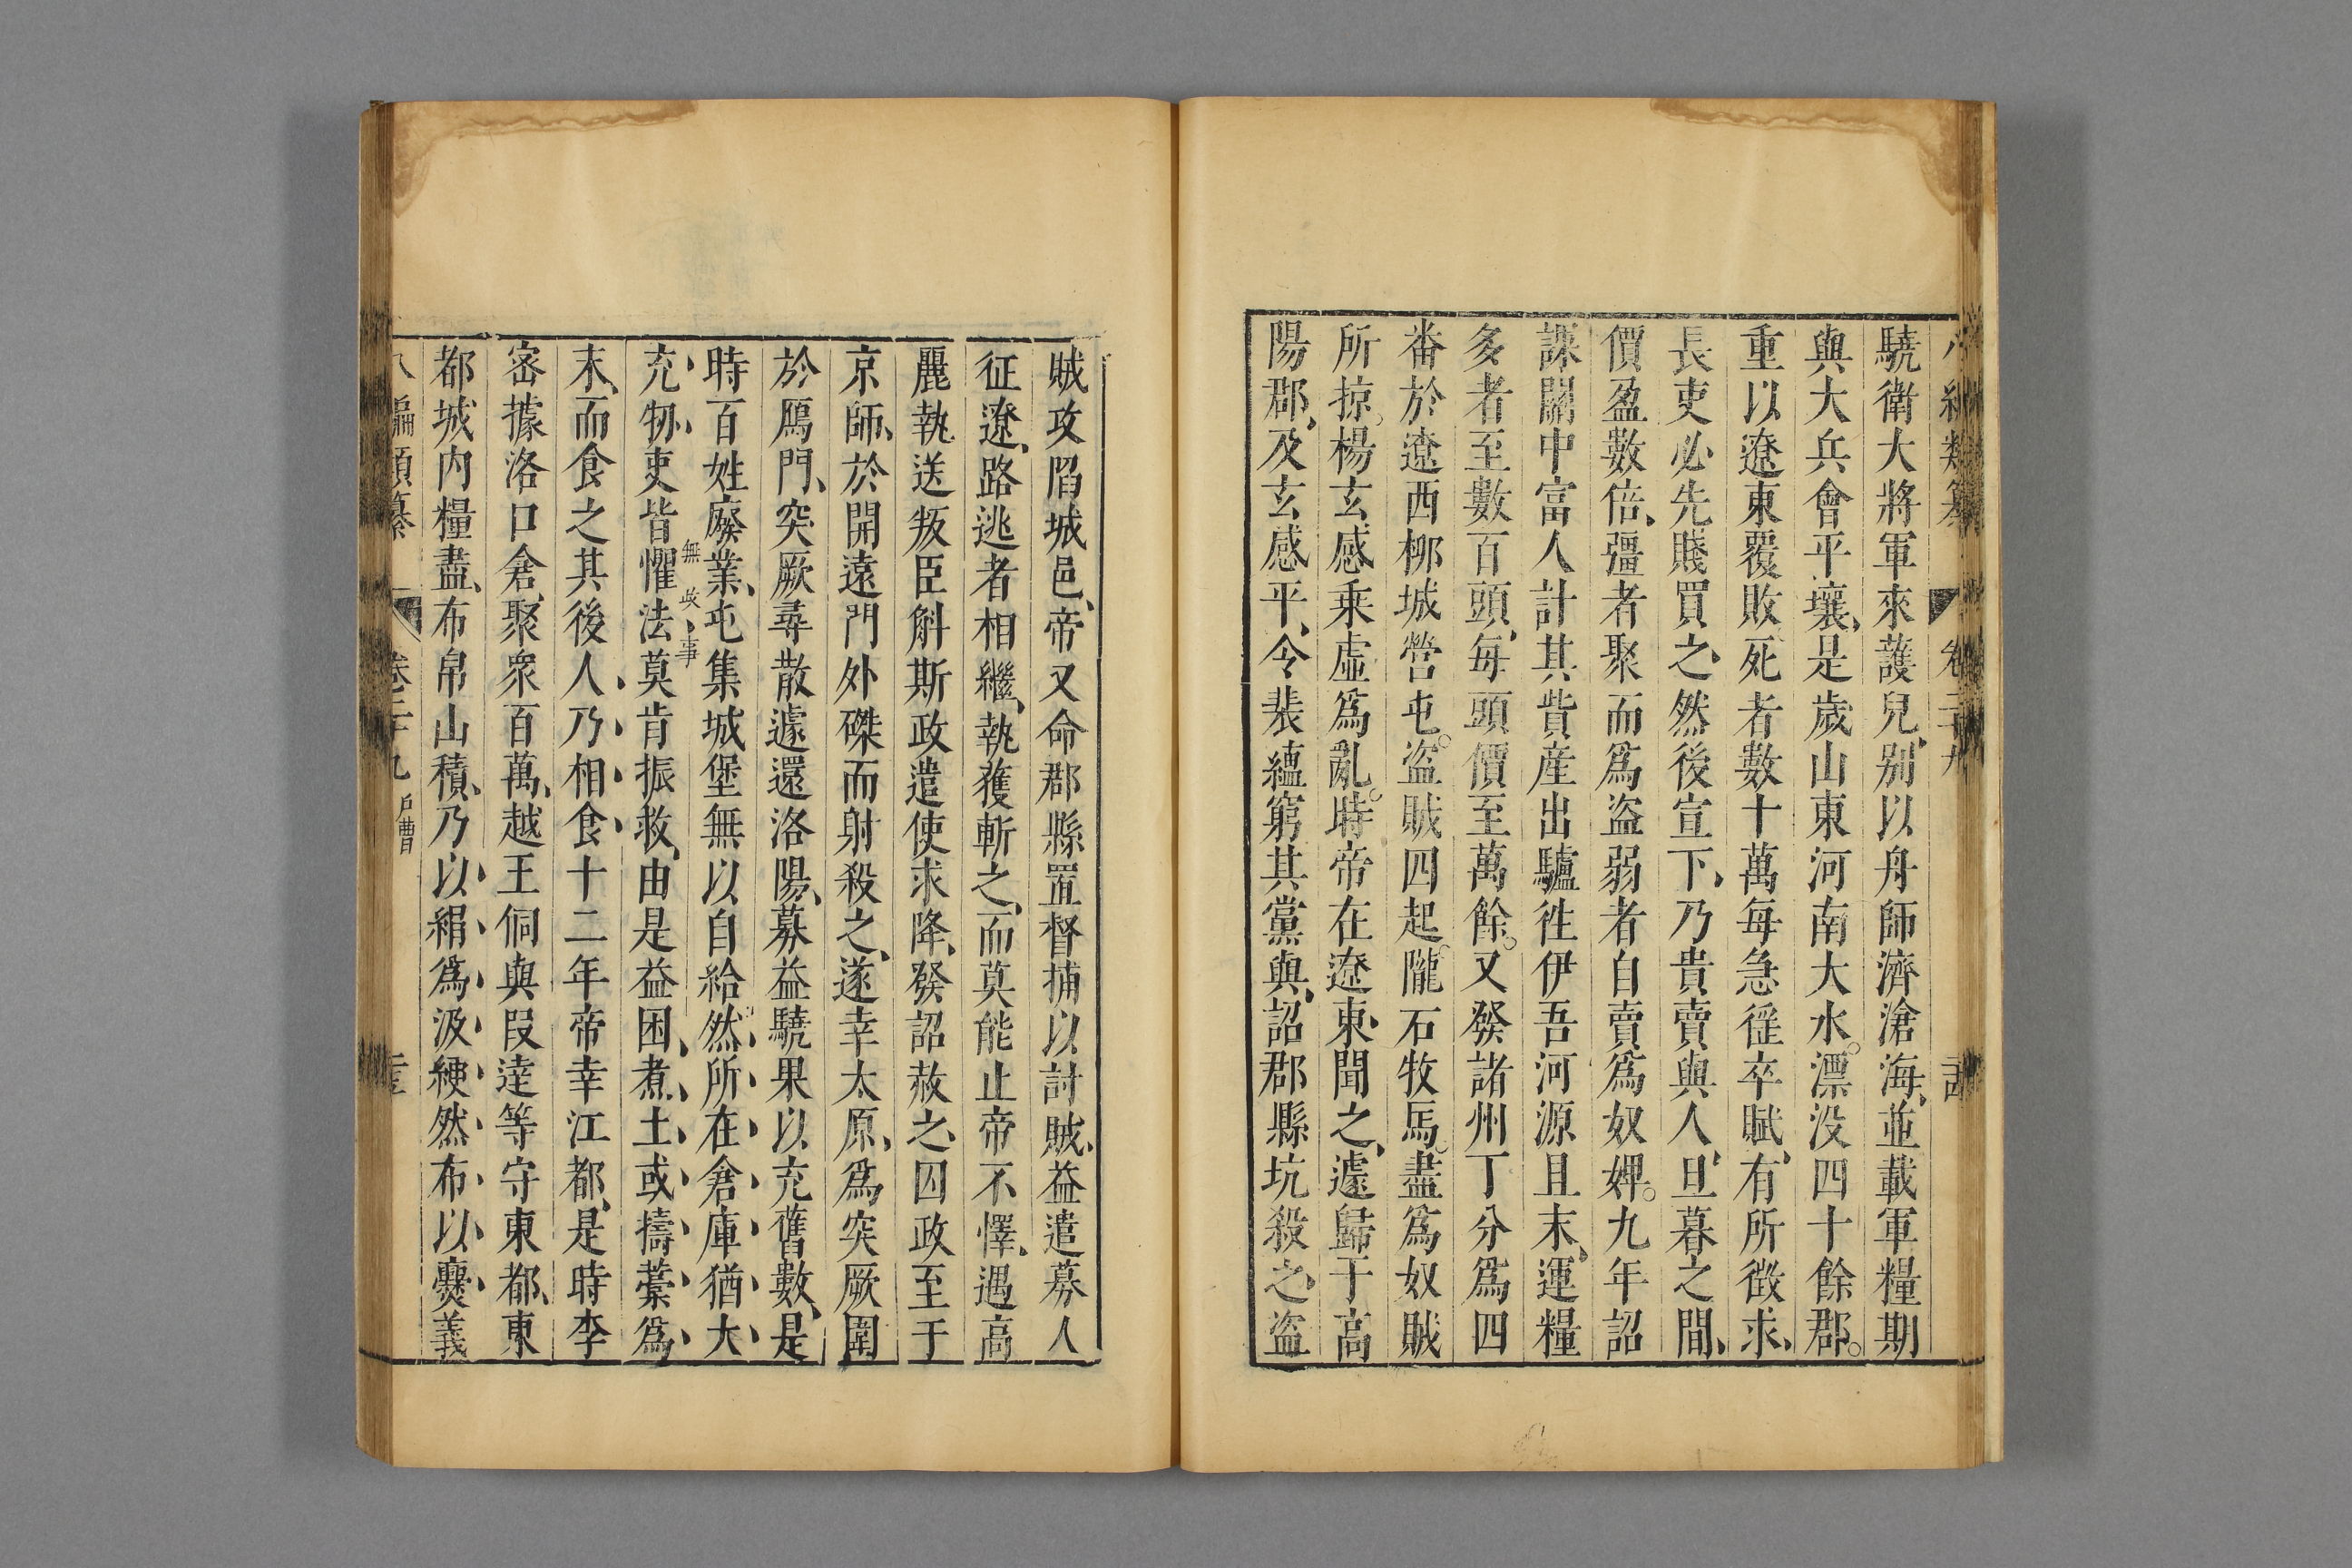 驍衛大將軍來護兒別以舟師濟滄海並載軍糧期
與大兵會平壤是歲山東河南大水漂没四十餘郡
重以遼東覆敗死者數十萬每急徭卒賦有所徵求
長吏必先賤買之然後宣下乃貴賣與人旦暮之間
價盈數倍彊者聚而爲盜弱者自賣爲奴婢九年詔
課關中富人計其貲産出驢徃伊吾河源且末運糧
多者至數百頭每頭價至萬餘又發諸州丁分爲四
番於遼西柳城營屯盜賊四起隴右牧馬盡爲奴賊
所掠楊玄感乗虛爲亂時帝在遼東聞之遽歸于高
陽郡及玄感平令裴蘊窮其黨與詔郡縣坑殺之盜
賊攻陷城邑帝又命郡縣置督捕以討賊益遣募人
征遼路逃者相繼執獲斬之而莫能止帝不懌遇高
麗執送叛臣斛斯政遣使求降發詔赦之囚政至于
京師於開遠門外磔而射殺之遂幸太原爲突厥圍
於鴈門突厥尋散遽還洛陽募益驍果以充舊數是
時百姓廢業屯集城堡無以自給然所在倉庫猶大
無此事
充牣吏皆懼法莫肯振救由是益困煮土或擣藁爲
末而食之其後人乃相食十二年帝幸江都是時李
密據洛口倉聚衆百萬越王侗與段達等守東都東
都城内糧盡布帛山積乃以絹爲汲綆然布以爨義
八編類纂 卷二十九 戶曹